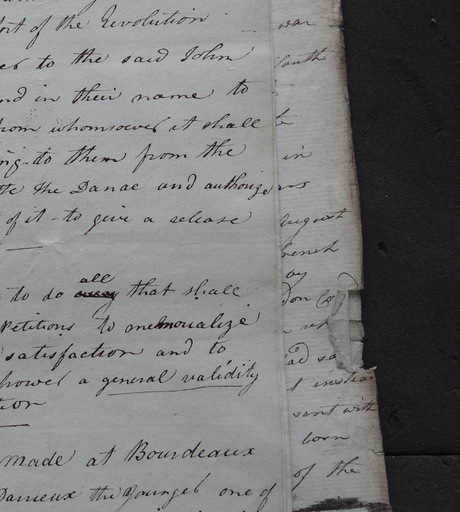 ort of the Revolution
er to the said John
nd in their name to
hom whomsoever it shall
ng to them from the
te the Danae and authorize
of it - to give a release
all
to do that shall
Petitions to memorialize
satisfaction and to
power a general validity
tion
made at Bourdeaux
Darrieux the younger one of
war
South
in
August
french
by
sent with
born
of the